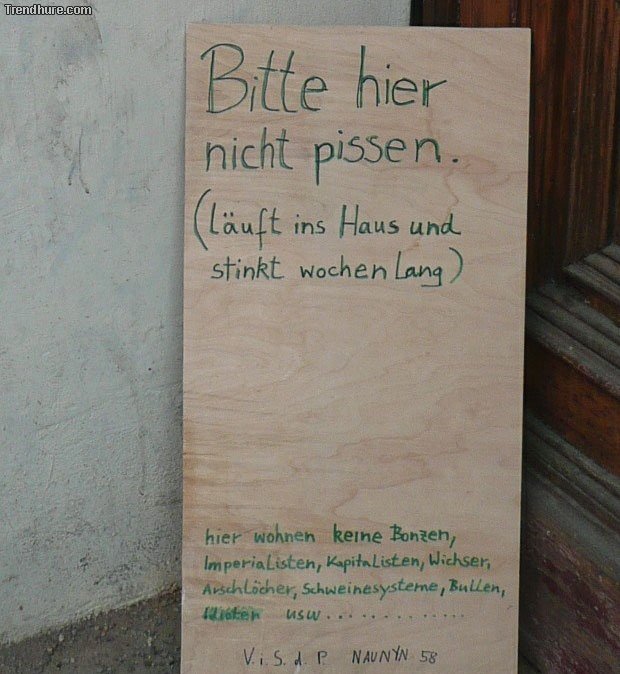 Trendhure.com
Bitte hier
nicht pissen.
(läuft ins Haus und
stinkt wochen Lang)
hier wohnen keine Bonzen,
Imperialisten, Kapitalisten, Wichser,
Arschlöcher, Schweinesysteme, Bullen,
Idioten usw.............
V. i. S. d. P. NAUNYN 58